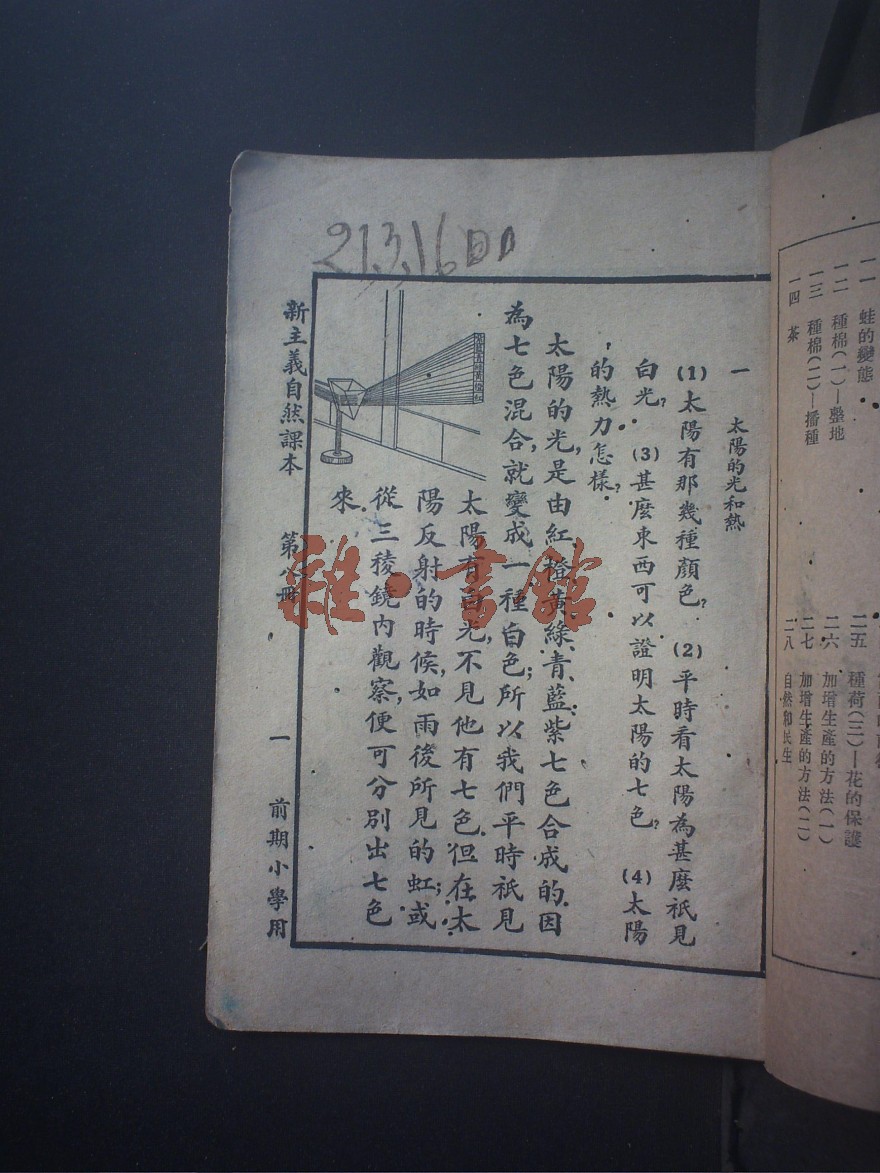 21.3.16日
一　太陽的光和熱
(1)太陽有那幾種顏色？　(2)平時看太陽為甚麼祇見
白光？　(3)甚麼東西可以證明太陽的七色？　(4)太陽
的熱力怎樣？
太陽的光，是由紅、橙、黃、綠、青、藍、紫七色合成的．因
為七色混合，就變成一種白色；所以我們平時祇見
太陽有白光，不見他有七色．但在太
陽反射的時候，如雨後所見的虹；或
從三稜鏡內觀察，便可分別出七色
來．
新主義自然課本　第八冊　一　前期小學用
雜·書館
一一　蛙的變態
一二　種棉(一)—整地
一三　種棉(二)—播種
一四　茶
二五　種荷(三)—花的保護
二六　加增生產的方法(一)
二七　加增生產的方法(二)
二八　自然和民生